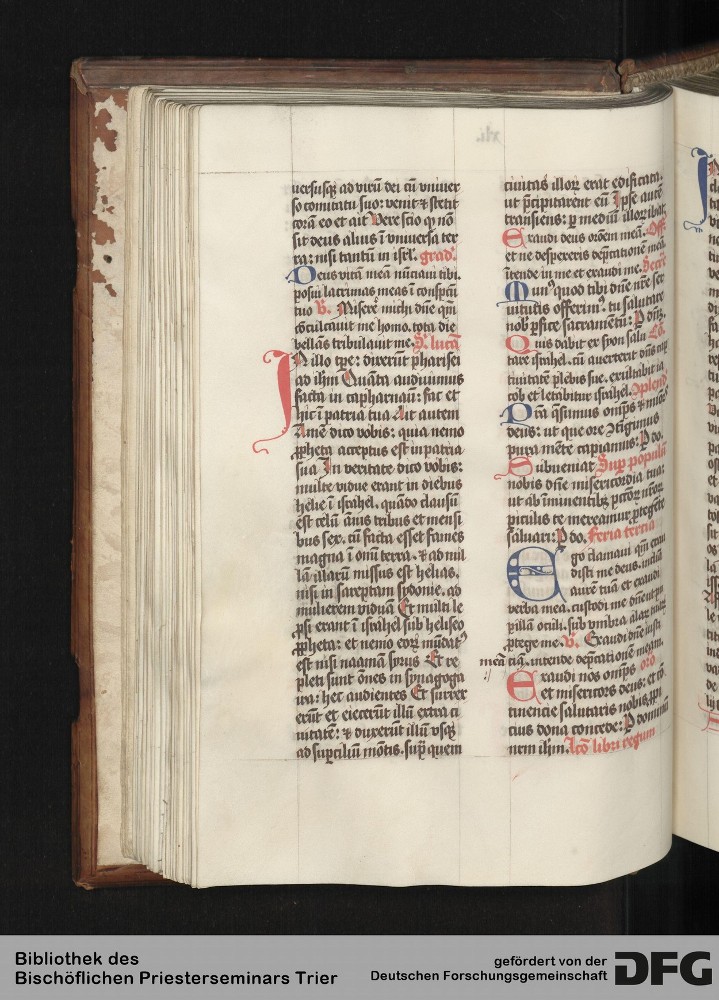 uersusq́ ad virū dei cū vniuer
so comitatu suo: venit & stetit
corā eo et ait Vere scio qꝫ nō
sit deus alius ī vniuersa ter
ra: nisi tantū in isrl'. grad'.
Deus vitā meā nūctaui tibi.
posui lacrimas meas ī conspcū
tuo V. Miserē michi dn̄e qm̄
cōculcauit me homo. tota die
bellās tribulauit me. S. lucā
In illo tpr̄e: dixerūt pharisei
ad ihm̄ Quāta audiuimus
facta in capharnaū: fac et
hic ī patria tua Ait autem
Amē dico vobis: quia nemo
ꝓpheta acceptus est in patria
sua In veritate dico vobis:
multe vidue erant in diebus
helie ī israhel. quādo clausū
est celū ānis tribus et mensi
bus sex. cū facta esset fames
magna ī om̄i terra. & ad nul
lā illarū missus est helias.
nisi in sareptam sydonie. ad
mulierem viduā Et multi le
psi erant ī israhel sub heliseo
ꝓpheta: et nemo eoꝝ mūdat9
est nisi naamā syrus Et re
pleti sunt ōnes in synagoga
ira: hec audientes Et surrex
erūt et eiecerūt illū extra ci
uitatē: & duxerūt illū vsq́
ad suꝑciliū mōtis. suꝑ quem
ciuitas illoꝝ erat edificata.
ut p̄cipitarent eū Ipse autē
transiens: ꝑ mediū illoꝝ ibat
Exaudi deus orōem meā. Off.
et ne despexeris dep̄cationē meā
ītende in me et exaudi me. Secr̄e
Mun9 quod tibi dn̄e nr̄e ser
uitutis offerim9. tu salutare
nob' ꝑfice sacramētū: P dn̄ꝫ.
Quis dabit ex syon salu Cō.
tare israhel. cū auerterit dn̄s cap
tiuitatē plebis sue. exultabit ia
cob et letabitur israhel. Oplend
Pr̄a q̄sumus om̄ps & miſ'rs
deus: ut que ore ↄtigimus
pura mēte capiamus: P do.
Subueniat Suꝑ populū
nobis dn̄e misericordia tua:
ut ab īminentibꝫ pccōꝝ nr̄oꝝ
piculis te mereamur ꝓtegēte
saluari: P do. Feria tercia
Ego clamaui qm̄ exau
disti me deus. inclīa
aurē tuā et exaudi
verba mea. custodi me dn̄e ut pu
pillā oculi. sub vmbra alaꝝ tuaꝝ
ꝓtege me. V. Exaudi dn̄e iusti
ciā. intende dep̄cationē meam.
meā
Exaudi nos om̄ps oro
et misericors deus: et cō
tinencie salutaris nobis. ꝓpi
cius dona concede: P dominū
nrm ihm̄. Lcō libri regum
Bibliothek des
Bischöflichen Priesterseminars Trier
gefördert von der
Deutschen Forschungsgemeinschaft
DFG